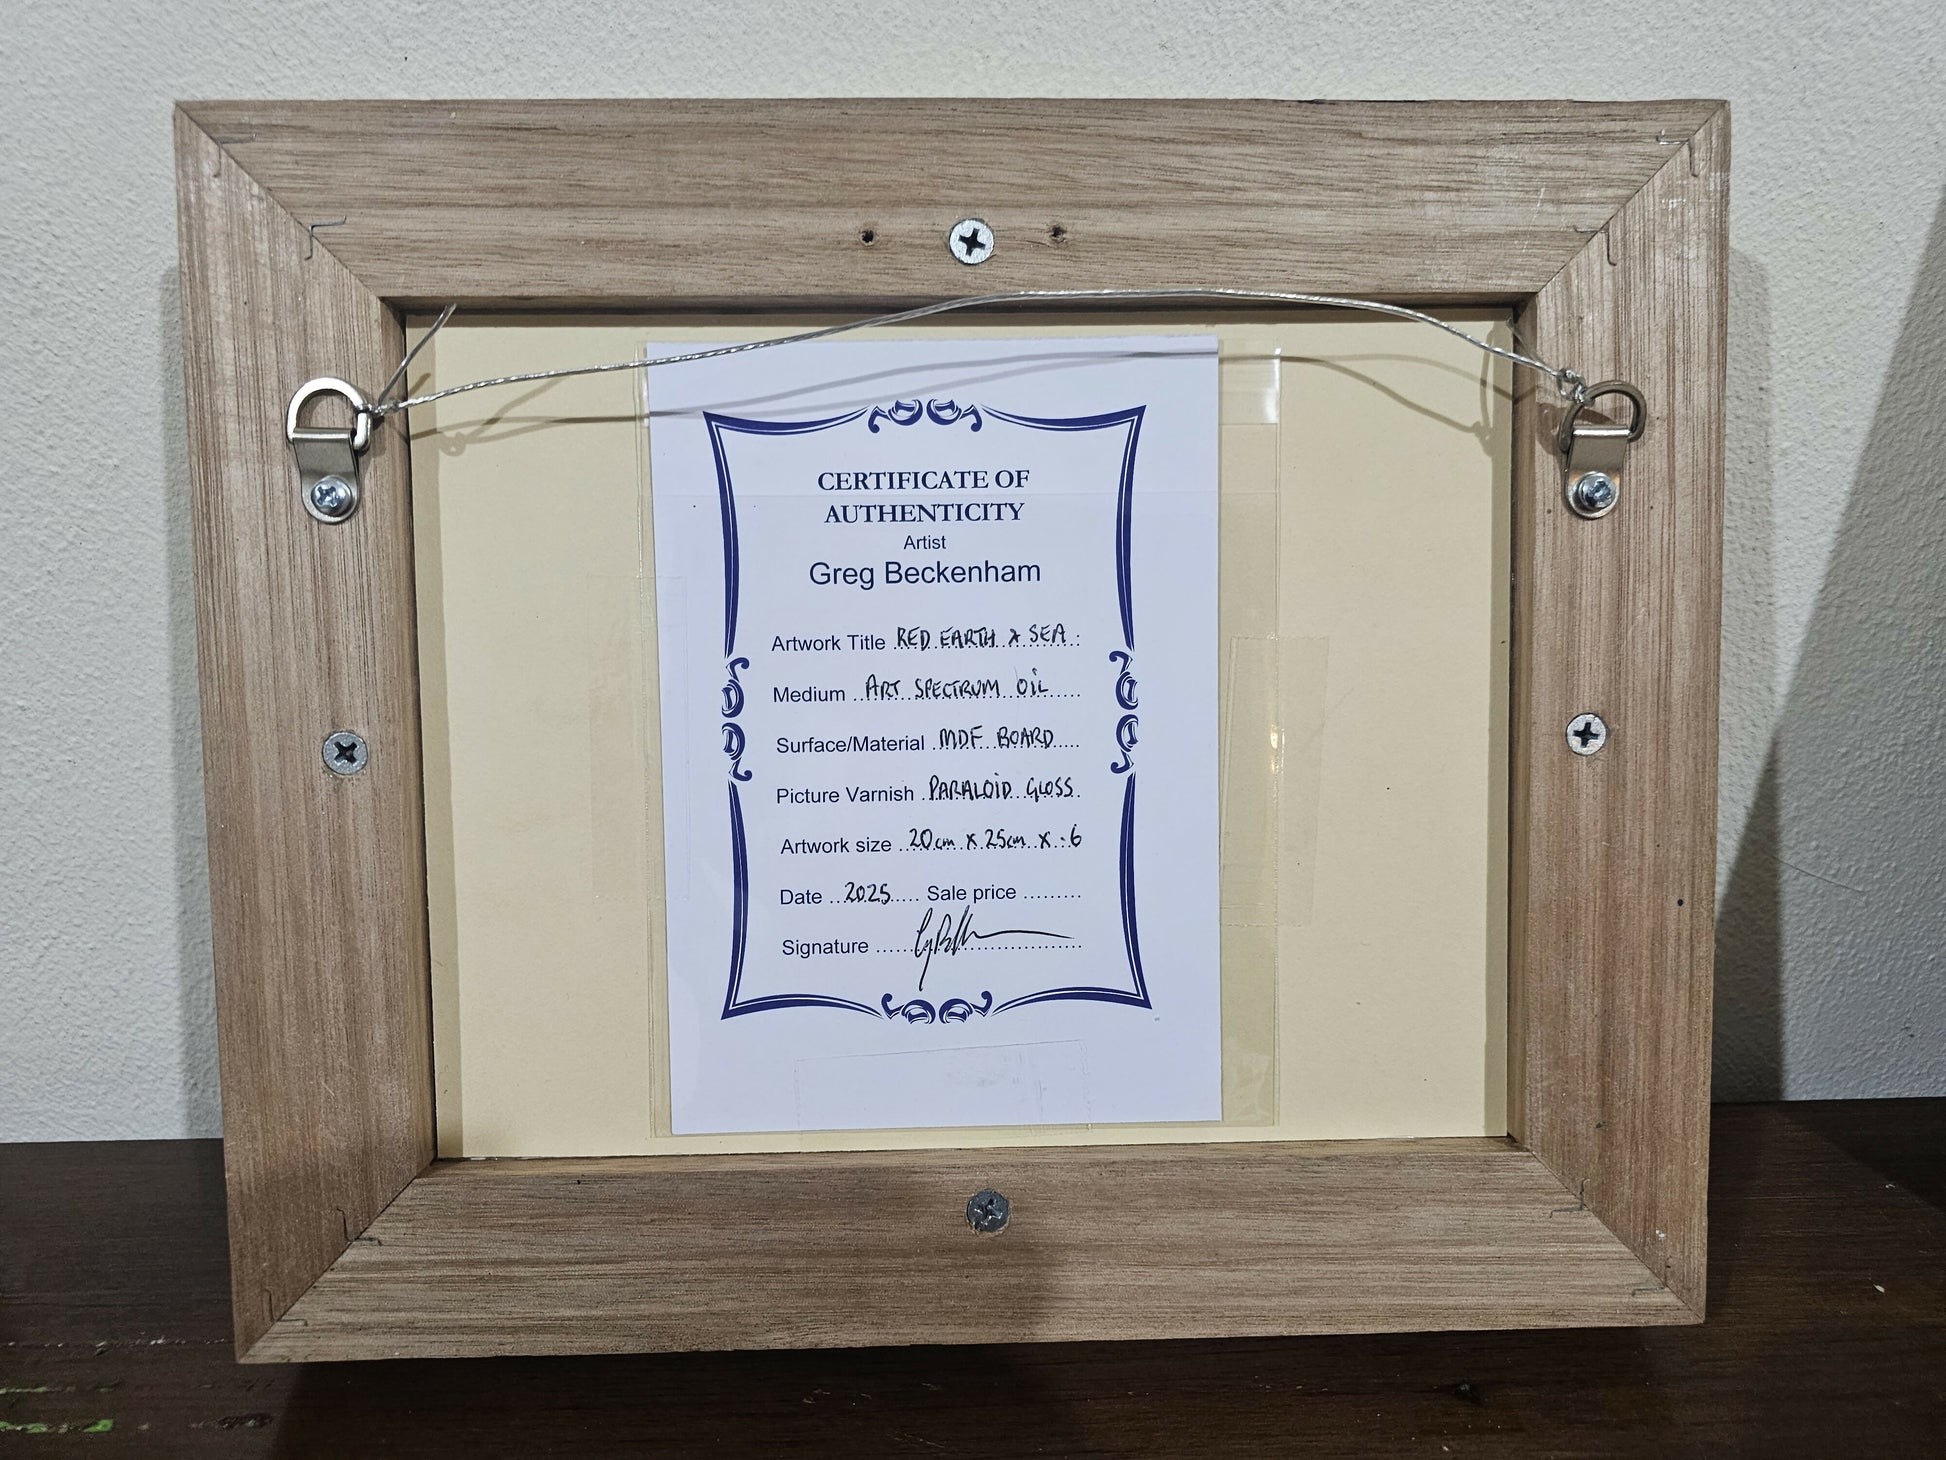 CERTIFICATE OF
AUTHENTICITY
Artist
Greg Beckenham
Artwork Title RED EARTH & SEA
Medium ART SPECTRUM OIL
Surface/Material MDF BOARD
Picture Varnish PARALOID GLOSS
Artwork size 20cm x 25cm x .6
Date 2025 Sale price
Signature